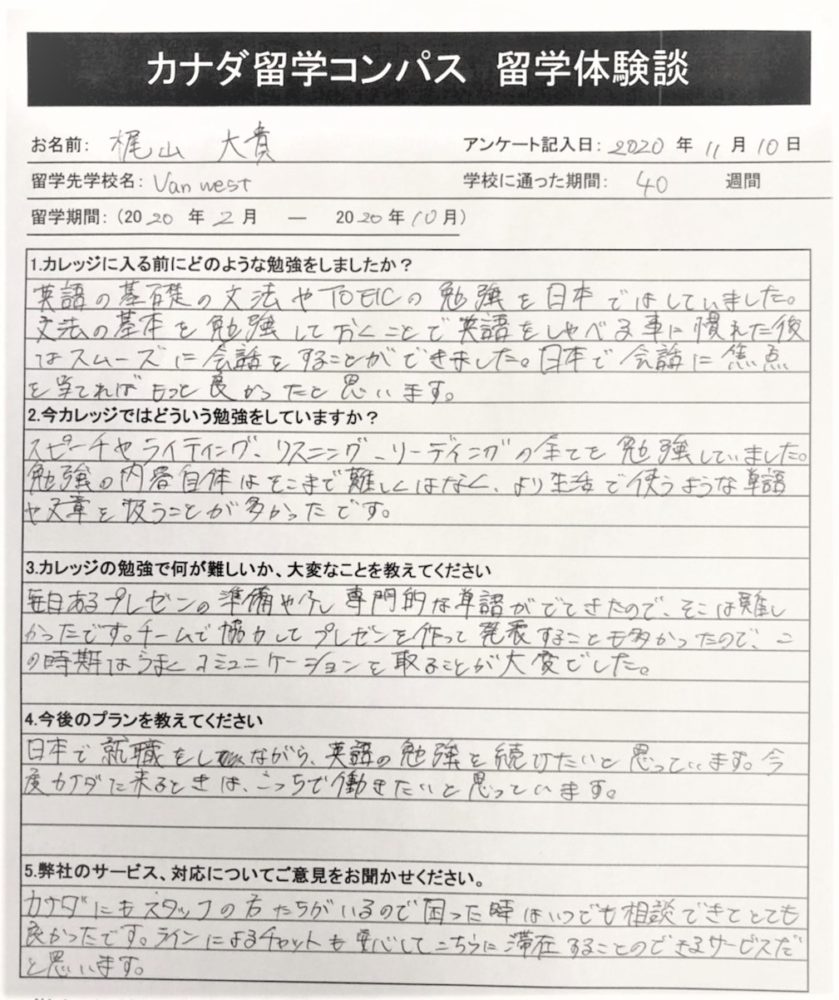 カナダ留学コンパス 留学体験談
お名前: 梶山 大貴 アンケート記入日: 2020 年 11 月 10 日
留学先学校名: Van west 学校に通った期間: 40 週間
留学期間: (2020 年 2 月 — 2020 年 10 月)
1.カレッジに入る前にどのような勉強をしましたか?
英語の基礎の文法やTOEICの勉強を日本ではしていました。
文法の基本を勉強しておくことで英語をしゃべる事に慣れた後
はスムーズに会話をすることができました。日本で会話に焦点
を当てればもっと良かったと思います。
2.今カレッジではどういう勉強をしていますか?
スピーチやライティング、リスニング、リーディングの全てを勉強していました。
勉強の内容自体はそこまで難しくはなく、より生活で使うような単語
や文章を扱うことが多かったです。
3.カレッジの勉強で何が難しいか、大変なことを教えてください
毎日あるプレゼンの準備や少し専門的な単語がでてきたので、そこは難し
かったです。チームで協力してプレゼンを作って発表することも多かったので、こ
の時期はうまくコミュニケーションを取ることが大変でした。
4.今後のプランを教えてください
日本で就職をしながら、英語の勉強を続けたいと思っています。今
度カナダに来るときは、こっちで働きたいと思っています。
5.弊社のサービス、対応についてご意見をお聞かせください。
カナダにもスタッフの方たちがいるので困った時はいつでも相談できてとても
良かったです。ラインによるチャットも安心してこちらに滞在することのできるサービスだ
と思います。